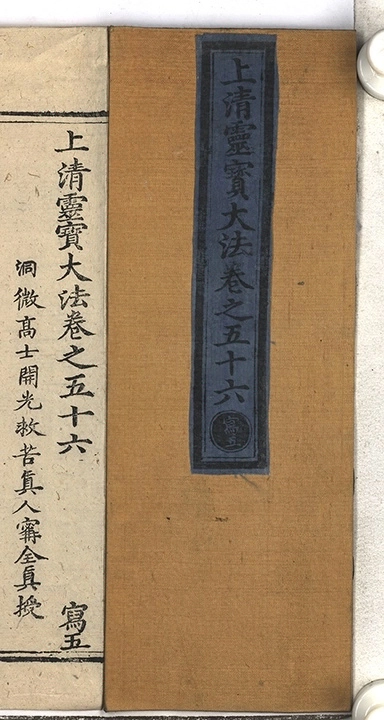 上清靈寳大法卷之五十六
寫五
上清靈寳大法卷之五十六 寫五
洞微高士開光救苦眞人甯全眞授